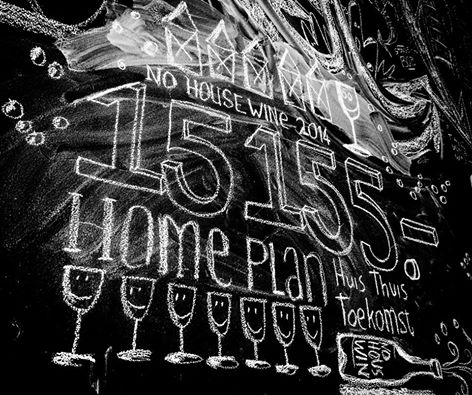 No House Wine 2014
15 155-
Home Plan
Huis Thuis
Toekomst
NO
HOUSE
WINE